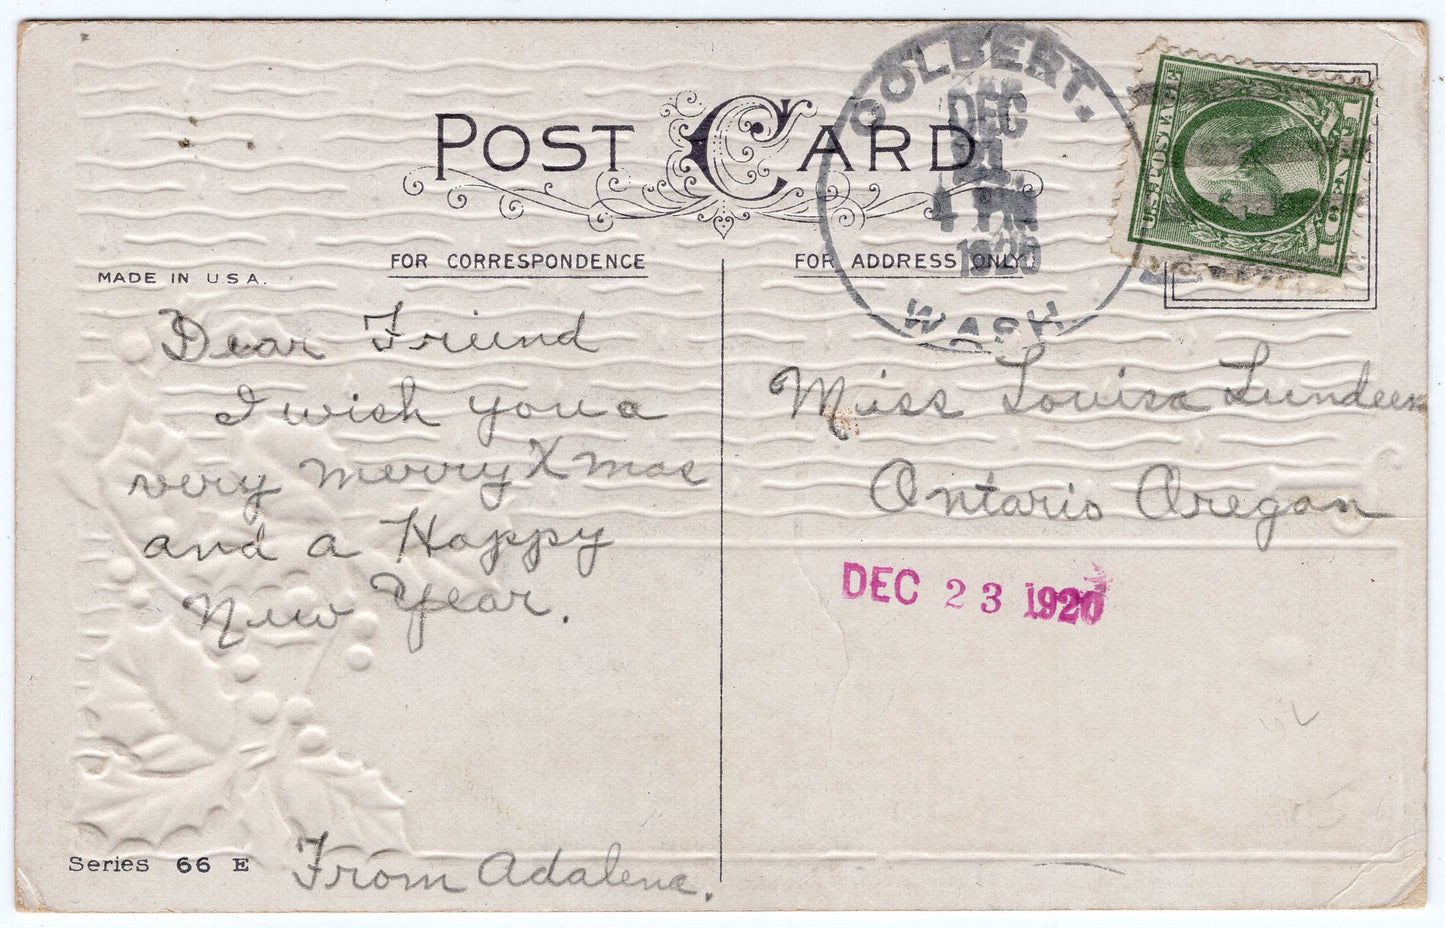 POST CARD
COLBERT.
DEC
21
4 PM
1920
WASH
U.S. POSTAGE
1 CENT 1
FOR CORRESPONDENCE
FOR ADDRESS ONLY
MADE IN U.S.A.
Dear Friend
I wish you a
very merry Xmas
and a Happy
New Year.
From Adalena.
Miss Louisa Lundeen
Ontario Oregon
DEC 23 1920
Series 66 E